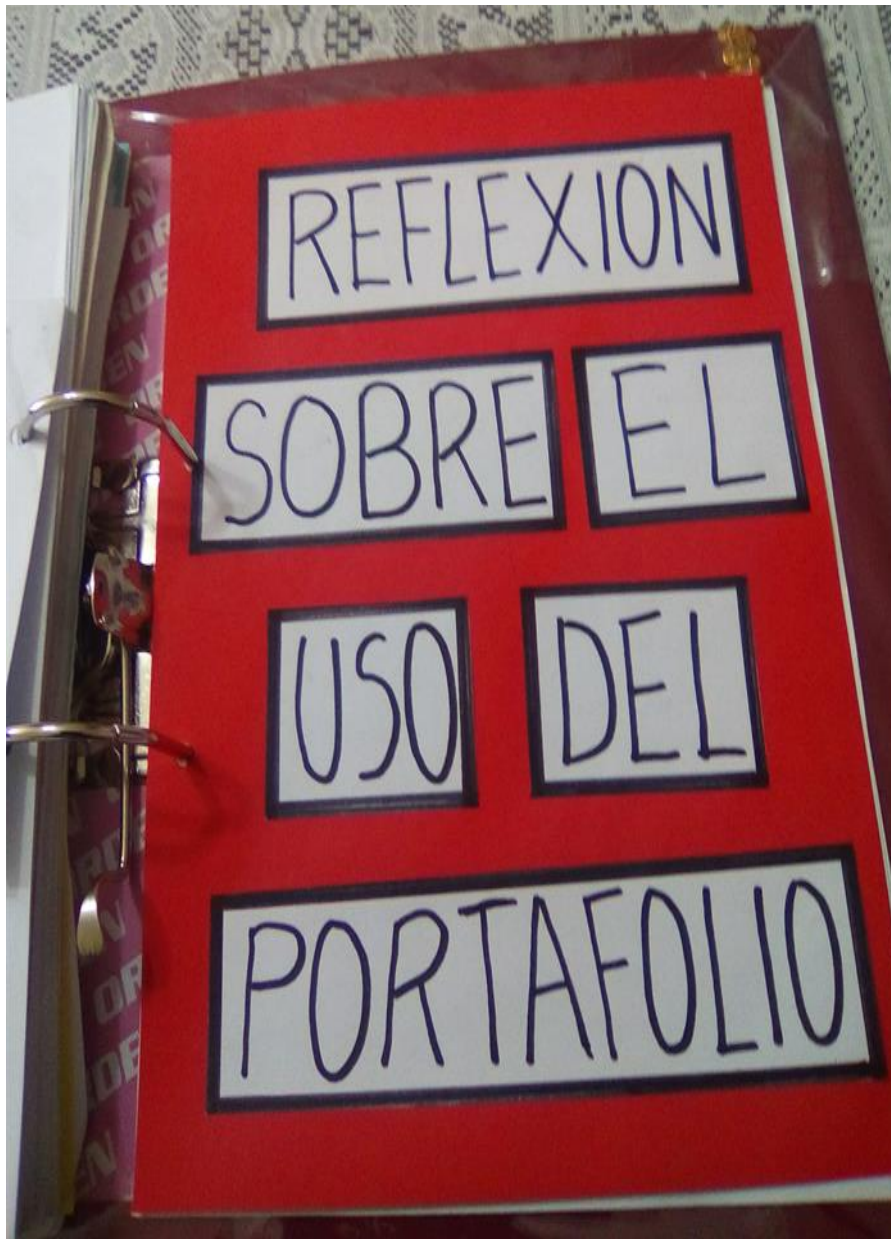 REFLEXION
SOBRE EL
USO DEL
PORTAFOLIO